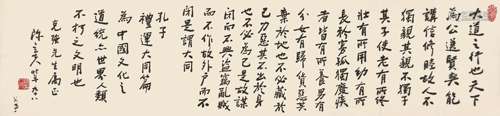 大道之行也天下
為公選賢與能
講信修睦故人不
獨親其親不獨子
其子使老有所終
壯有所用幼有所
長矜寡孤獨廢疾
者皆有所養男有
分女有歸貨惡其
棄於地也不必藏於
己力惡其不出於身
也不必為己是故謀
閉而不興盜竊亂賊
而不作故外戶而不
閉是謂大同
孔子
禮運大同篇
為中國文化之
道統亦世界人類
不朽之文明也
先生屬正
陳立夫 年九八